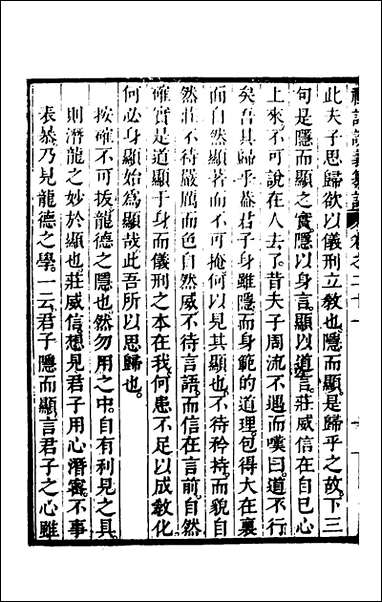 禮記說義纂訂 卷之二十一
此夫子思歸欲以儀刑立敎也隱而顯是歸乎之故下三
句是隱而顯之實隱以身言顯以道言莊威信在自己心
上來不可說在人去了昔夫子周流不遇而嘆曰道不行
矣吾其歸乎葢君子身雖隱而身範的道理包得大在裏
面自然顯著而不可掩何以見其顯也不待矜持而貌自
然莊不待嚴厲而色自然威不待言語而信在言前自然
確實是道顯于身而儀刑之本在我何患不足以成敎化
何必身顯始爲顯哉此吾所以思歸也
按確不可拔龍德之隱也然勿用之中自有利見之具
則潛龍之妙於顯也莊威信想見君子用心潛密不事
表暴乃見龍德之學一云君子隱而顯言君子之心雖